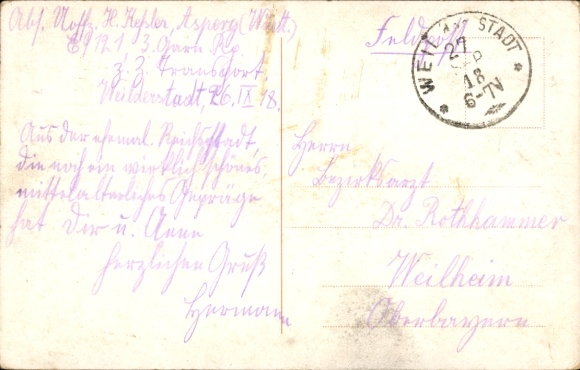 Abs. Uoffz. H. Kepler, Asperg (Württ.)
E 9 121 3. Garn. Kp.
z. Z. Transport
Weilderstadt, 26. IX 18.
Feldpost
WEIL DER STADT
27
18
6-7 N
Aus der ehemal. Reichsstadt,
die noch ein wirklich schönes,
mittelalterliches Gepräge
hat Dir u. Anne
herzlichen Gruß
Hermann
Herrn
Bezirksarzt
Dr. Rothhammer
Weilheim
Oberbayern